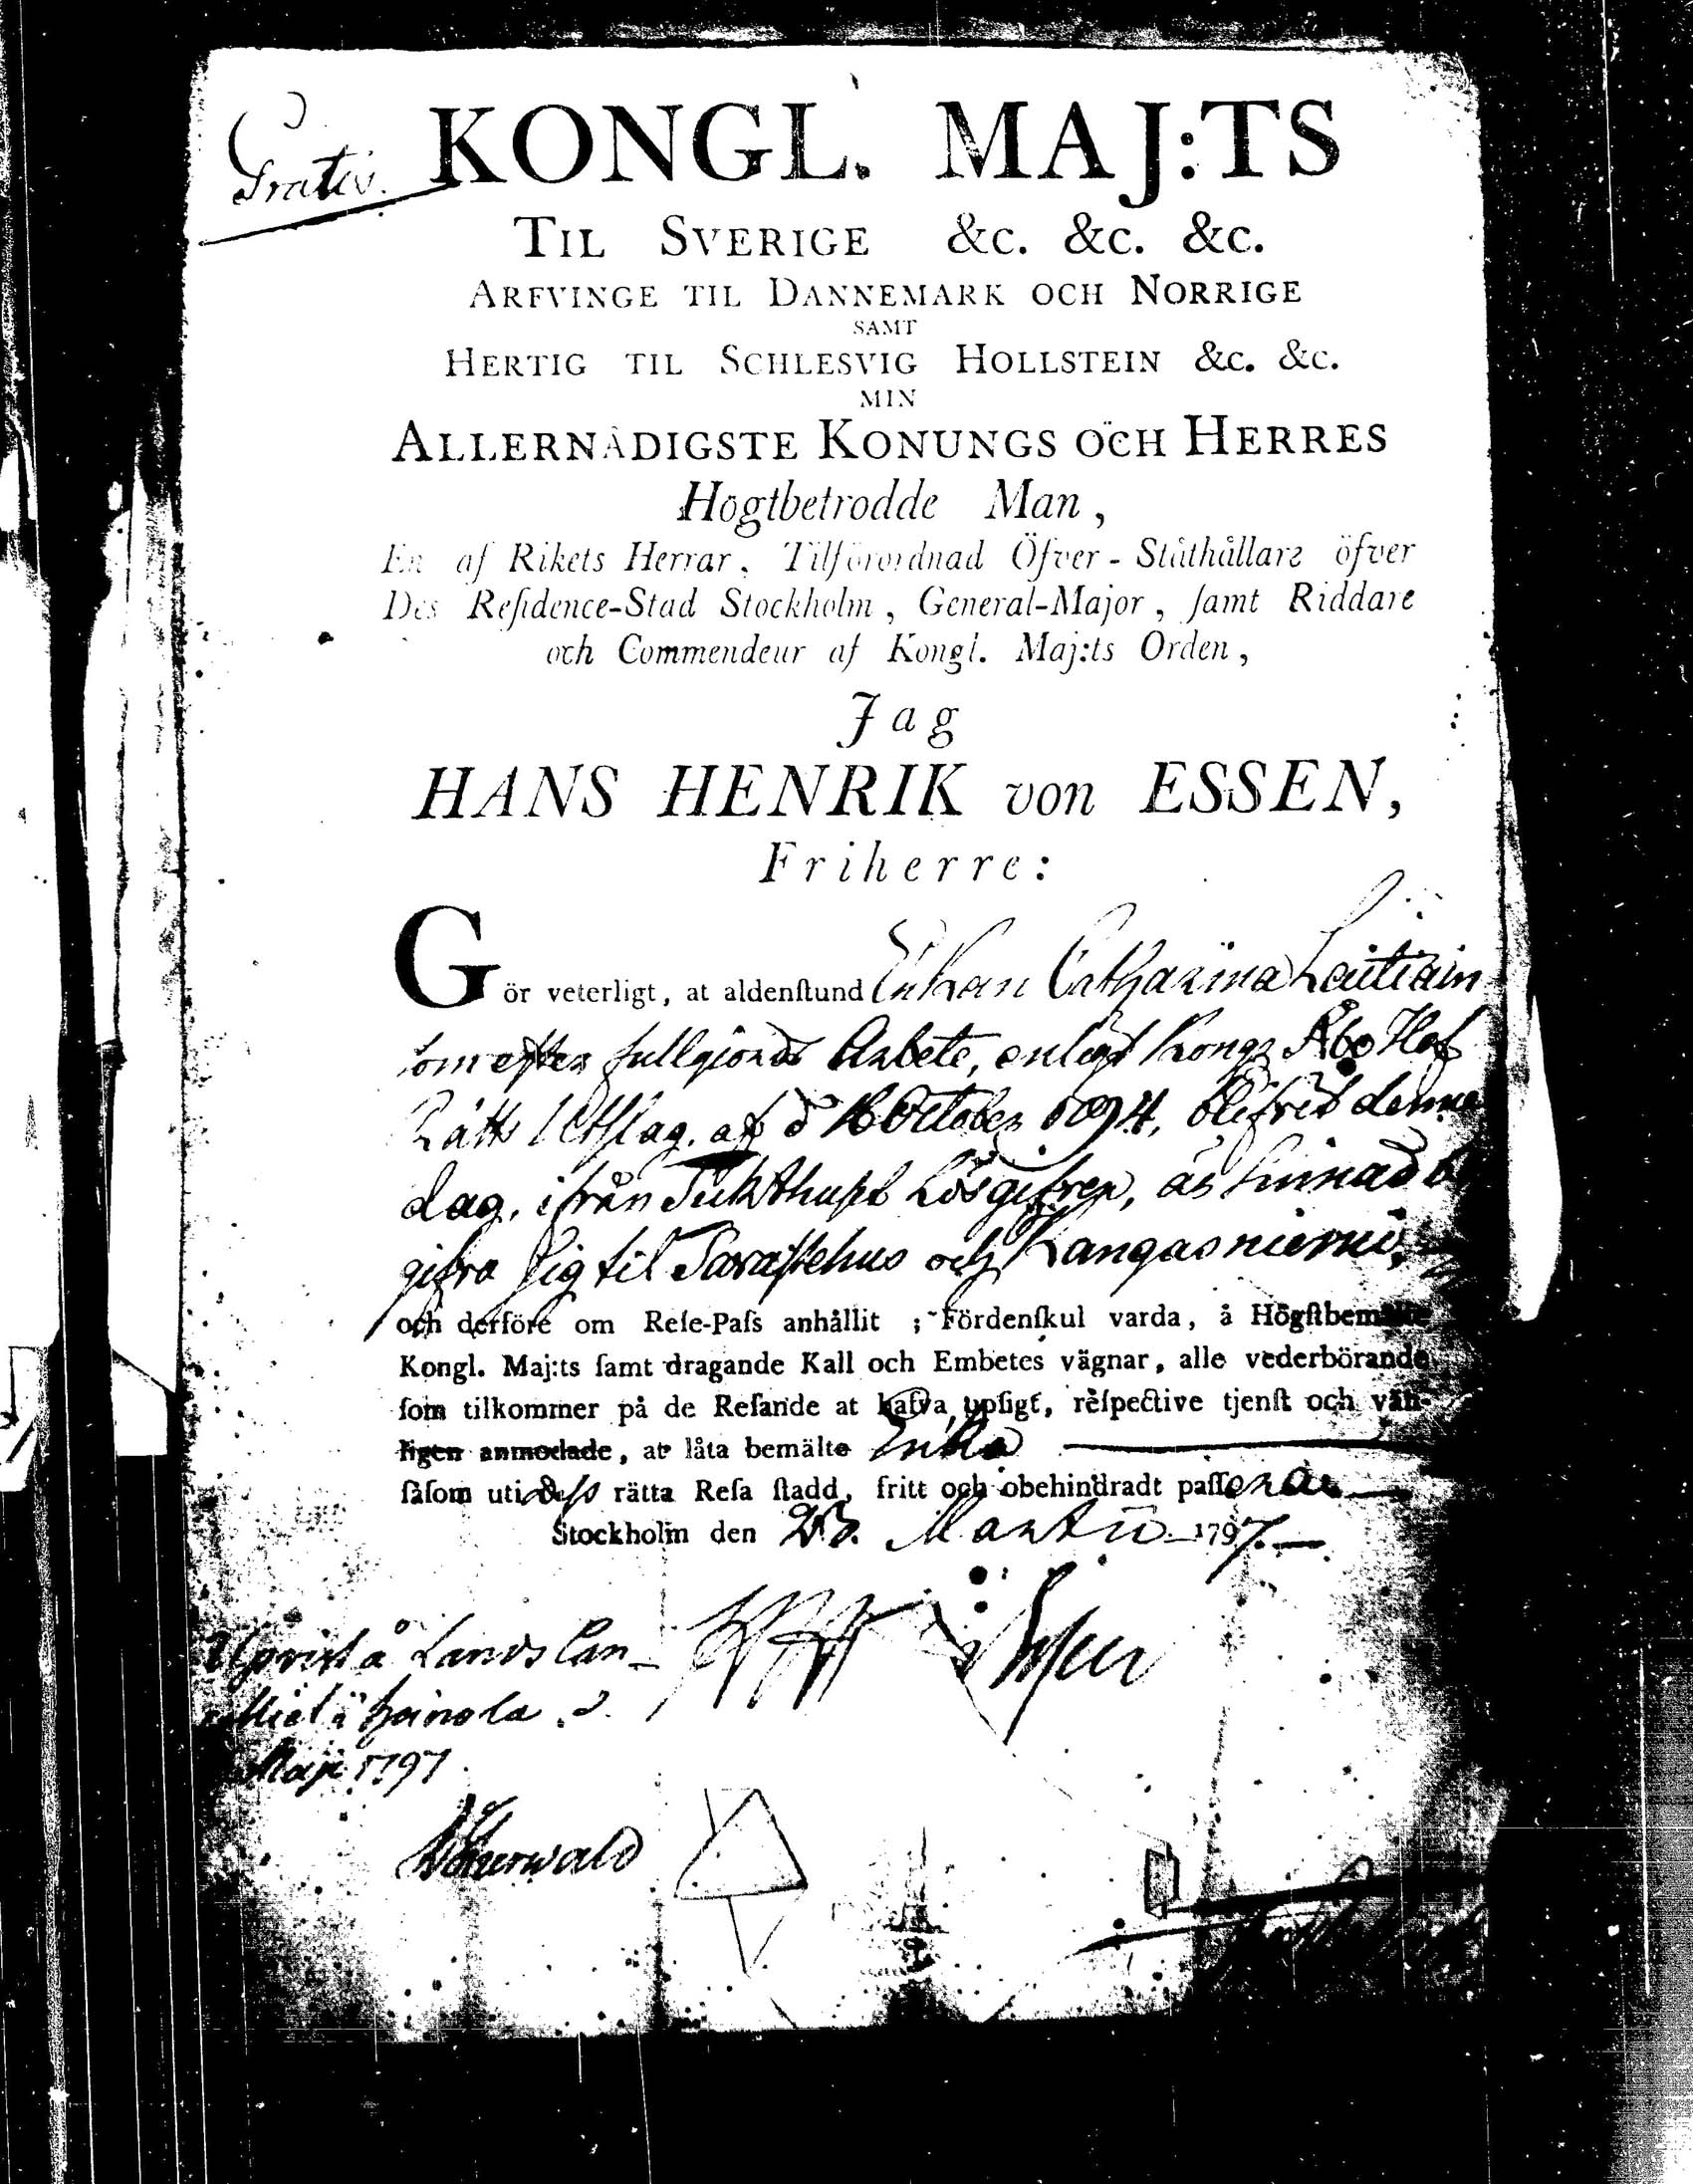 Gratis.
KONGL. MAJ:TS
TIL SVERIGE &c. &c. &c.
ARFVINGE TIL DANNEMARK OCH NORRIGE
SAMT
HERTIG TIL SCHLESVIG HOLLSTEIN &c. &c.
MIN
ALLERNÅDIGSTE KONUNGS OCH HERRES
Högtbetrodde Man,
En af Rikets Herrar, Tilförordnad Öfver-Ståthållare öfver
Des Reſidence-Stad Stockholm, General-Major, ſamt Riddare
och Commendeur af Kongl. Maj:ts Orden,
Jag
HANS HENRIK von ESSEN,
Friherre:
Gör veterligt, at aldenſtund Enkan Catharina Lautiain
ſom efter fullgjordt Arbete, enligt Kongl Åbo Hof
Rätts Utſlag, af d 16 October 1794, blifvit denne
dag, ifrån Tukthuſet Lösgifven, är ſinnad be
gifva ſig til Tavaſtehus och Kangasniemi,
och derföre om Reſe-Paſs anhållit; Fördenſkul varda, å Högſtbemälte
Kongl. Maj:ts ſamt dragande Kall och Embetes vägnar, alle vederbörande
ſom tilkommer på de Reſande at hafva upſigt, reſpective tjenſt och vän-
ligen anmodade, at låta bemälte Enka
ſåſom uti deſs rätta Reſa ſtadd, fritt och obehindradt paſſera
Stockholm den 23. Martii 1797.
Upviſt å Lands Can-
celliet i Heinola d.
Maji 1797
HH v Eſſen